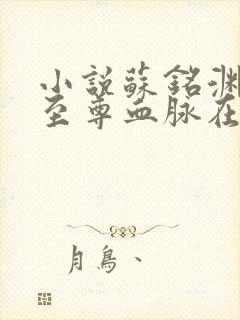 小說蘇銘淵
至尊血脉在
月鳥、